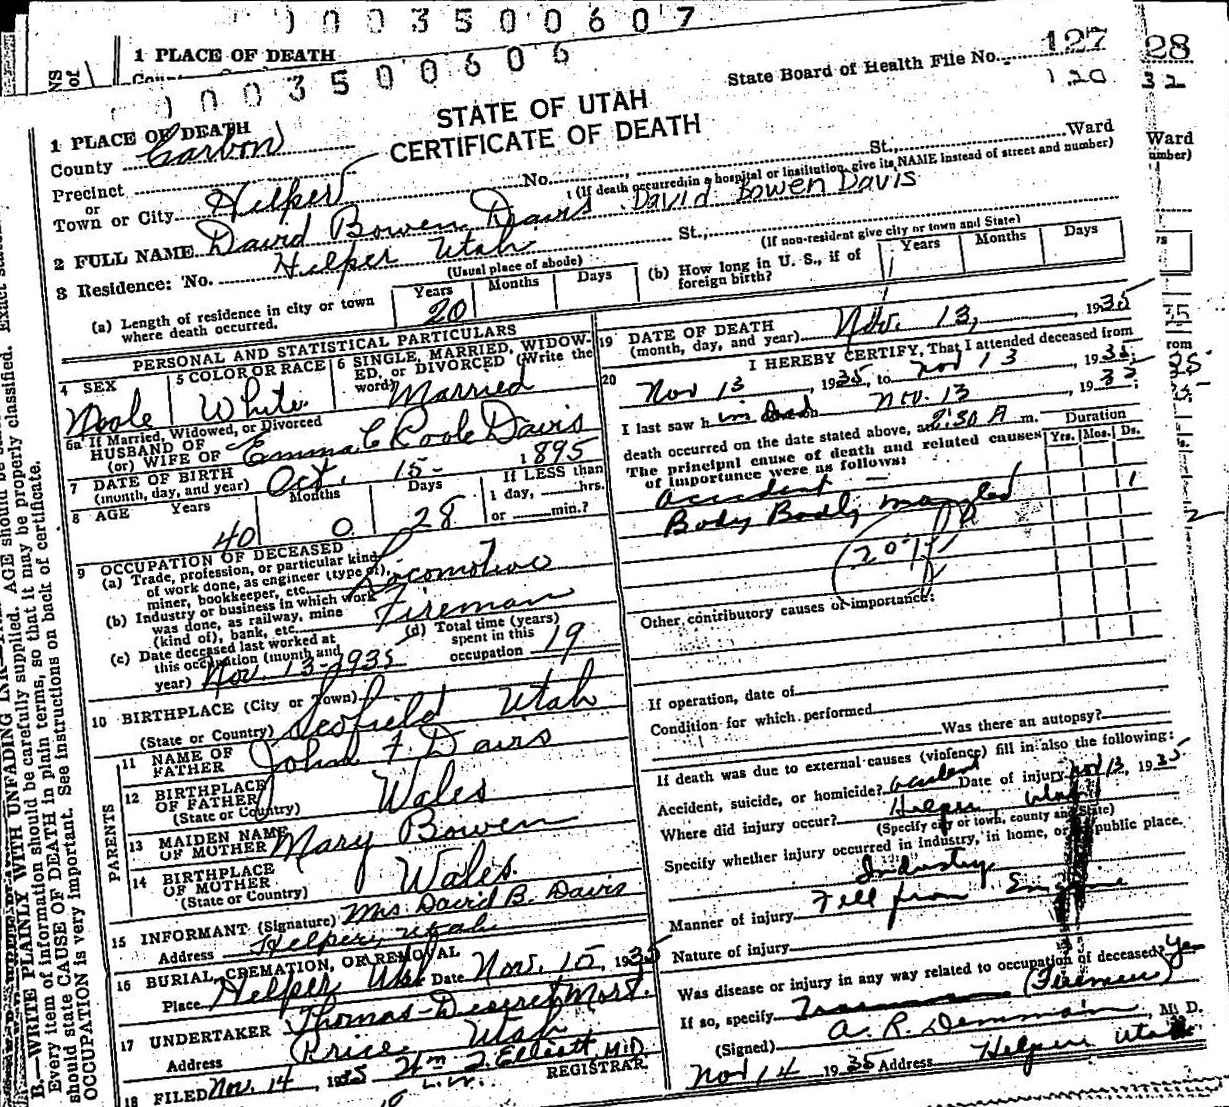 0003500607
1 PLACE OF DEATH
0003500606
State Board of Health File No. 127 28
120 32
STATE OF UTAH
CERTIFICATE OF DEATH
1 PLACE OF DEATH
County Carbon
Precinct
or
Town or City Helper No. St., Ward
(If death occurred in a hospital or institution, give its NAME instead of street and number)
2 FULL NAME David Bowen Davis David Bowen Davis
3 Residence: No. Helper Utah St.,
(Usual place of abode) (If non-resident give city or town and State)
(a) Length of residence in city or town where death occurred. Years 20 Months Days
(b) How long in U. S., if of foreign birth? Years Months Days
PERSONAL AND STATISTICAL PARTICULARS
4 SEX Male
5 COLOR OR RACE White
6 SINGLE, MARRIED, WIDOWED, OR DIVORCED (Write the word) Married
6a If Married, Widowed, or Divorced
HUSBAND OF
(or) WIFE OF Emma C Poole Davis
7 DATE OF BIRTH
(month, day, and year) Oct. 15- 1895
8 AGE Years 40 Months 0 Days 28
If LESS than
1 day, hrs.
or min.?
9 OCCUPATION OF DECEASED
(a) Trade, profession, or particular kind
of work done, as engineer (type of),
miner, bookkeeper, etc. Locomotive
(b) Industry or business in which work
was done, as railway, mine
(kind of), bank, etc. Fireman
(c) Date deceased last worked at
this occupation (month and
year) Nov. 13-1935
(d) Total time (years)
spent in this
occupation 19
10 BIRTHPLACE (City or Town)
(State or Country) Scofield Utah
PARENTS
11 NAME OF
FATHER John F Davis
12 BIRTHPLACE
OF FATHER
(State or Country) Wales
13 MAIDEN NAME
OF MOTHER Mary Bowen
14 BIRTHPLACE
OF MOTHER
(State or Country) Wales.
15 INFORMANT (Signature) Mrs. David B. Davis
Address Helper, Utah
16 BURIAL, CREMATION, OR REMOVAL
Place Helper Utah Date Nov. 15, 1935
17 UNDERTAKER Thomas-Deseret Mort.
Address Price Utah
18 FILED Nov. 14, 1935 Wm J. Elliott, M.D.
REGISTRAR.
19 DATE OF DEATH
(month, day, and year) Nov. 13, 1935
20 I HEREBY CERTIFY, That I attended deceased from
Nov 13, 1935, to Nov 13, 1935
I last saw him Dead on Nov. 13, 1935
death occurred on the date stated above, at 2:30 A m.
The principal cause of death and related causes
of importance were as follows:
Duration
Yrs. Mos. Ds.
accident —
Body Badly mangled 1
Other contributory causes of importance:
If operation, date of
Condition for which performed
Was there an autopsy?
If death was due to external causes (violence) fill in also the following:
Accident, suicide, or homicide? accident Date of injury Nov 13, 1935
Where did injury occur? Helper, Utah
(Specify city or town, county and State)
Specify whether injury occurred in industry, in home, or public place.
Industry
Manner of injury Fell from Engine
Nature of injury
Was disease or injury in any way related to occupation of deceased? Yes
If so, specify (Fireman)
(Signed) A. R. Demman, M. D.
Nov 14 1935 Address Helper Utah
B.—WRITE PLAINLY WITH UNFADING INK
Every item of information should be carefully supplied. AGE should be
should state CAUSE OF DEATH in plain terms, so that it may be properly classified. Exact
OCCUPATION is very important. See instructions on back of certificate.
Ward